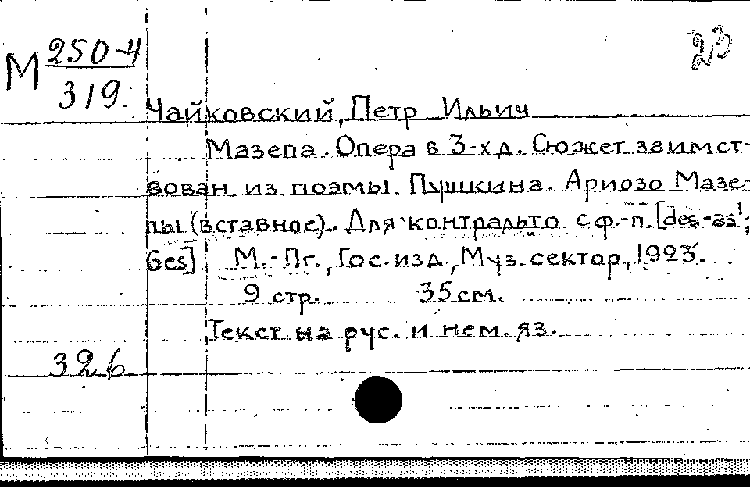 23
М 250-4
319.
Чайковский, Петр Ильич
Мазепа. Опера в 3-х д. Сюжет заимст-
вован из поэмы Пушкина. Ариозо Мазе-
пы (вставное). Для контральто с ф.-п. [des-as¹;
Ges] М.-Пг., Гос. изд., Муз. сектор, 1923.
9 стр. 35 см.
Текст на рус. и нем. яз.
326